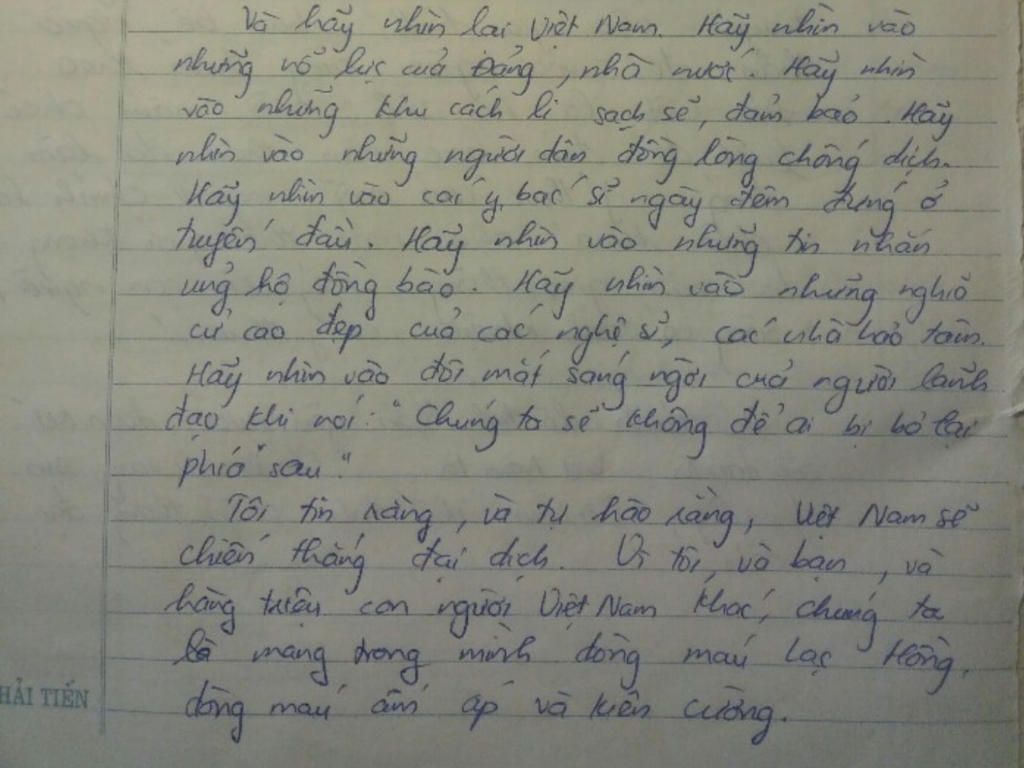 Và hãy nhìn lại Việt Nam. Hãy nhìn vào
những nỗ lực của Đảng, nhà nước. Hãy nhìn
vào những khu cách li sạch sẽ, đảm bảo. Hãy
nhìn vào những người dân đồng lòng chống dịch.
Hãy nhìn vào các y, bác sĩ ngày đêm đứng ở
tuyến đầu. Hãy nhìn vào những tin nhắn
ủng hộ đồng bào. Hãy nhìn vào những nghĩa
cử cao đẹp của các nghệ sĩ, các nhà hảo tâm.
Hãy nhìn vào đôi mắt sáng ngời của người lãnh
đạo khi nói: "Chúng ta sẽ không để ai bị bỏ lại
phía sau"
Tôi tin rằng, và tự hào rằng, Việt Nam sẽ
chiến thắng đại dịch. Vì tôi, và bạn, và
hàng triệu con người Việt Nam khác, chúng ta
mang trong mình dòng máu Lạc Hồng,
dòng máu ấm áp và kiên cường.
HẢI TIẾN